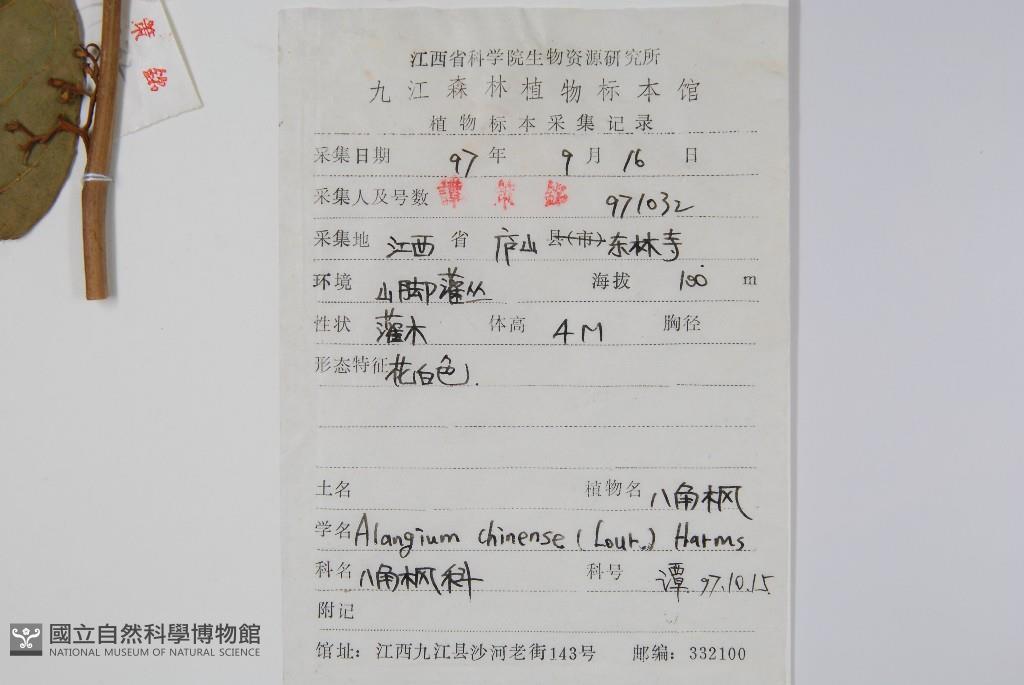 策
江西省科学院生物资源研究所
九江森林植物标本馆
植物标本采集记录
采集日期 97年 9月 16日
采集人及号数 谭策铭 971032
采集地 江西 省 庐山 县(市) 东林寺
环境 山脚灌丛 海拔 100 m
性状 灌木 体高 4M 胸径
形态特征 花白色.
土名 植物名 八角枫
学名 Alangium chinense (Lour.) Harms
科名 八角枫科 科号 谭 97.10.15
附记
馆址：江西九江县沙河老街143号 邮编：332100
國立自然科學博物館
NATIONAL MUSEUM OF NATURAL SCIENCE